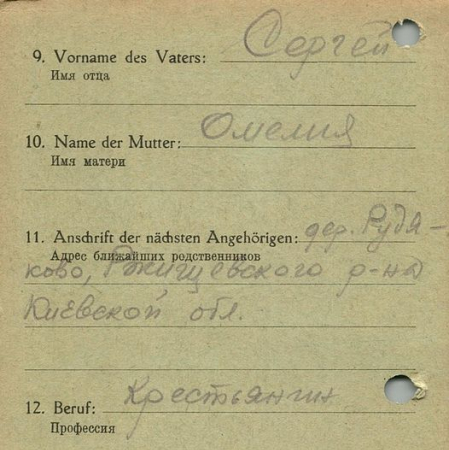 9. Vorname des Vaters: Сергей
Имя отца
10. Name der Mutter: Омелия
Имя матери
11. Anschrift der nächsten Angehörigen: дер. Рудя-
Адрес ближайших родственников
ково, Ржищевского р-на
Киевской обл.
12. Beruf: Крестьянин
Профессия